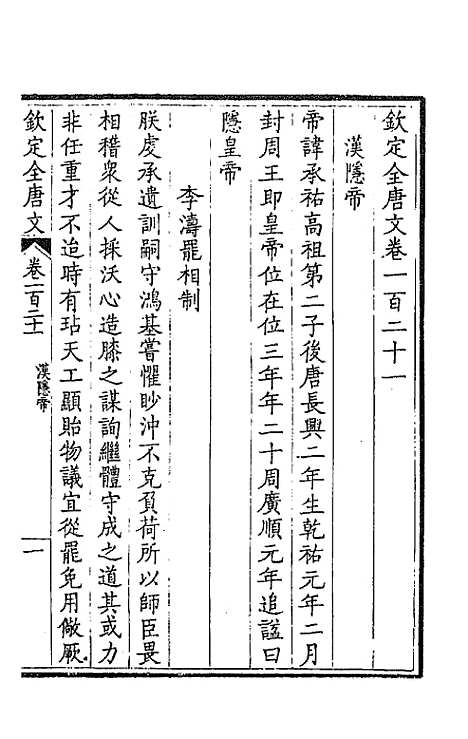 欽定全唐文卷一百二十一
漢隱帝
帝諱承祐高祖第二子後唐長興二年生乾祐元年二月
封周王即皇帝位在位三年年二十周廣順元年追諡曰
隱皇帝
李濤罷相制
朕虔承遺訓嗣守鴻基嘗懼眇沖不克負荷所以師臣畏
相稽衆從人採沃心造膝之謀詢繼體守成之道其或力
非任重才不迨時有玷天工顯貽物議宜從罷免用儆厥
欽定全唐文
卷一百二十一
漢隱帝
一